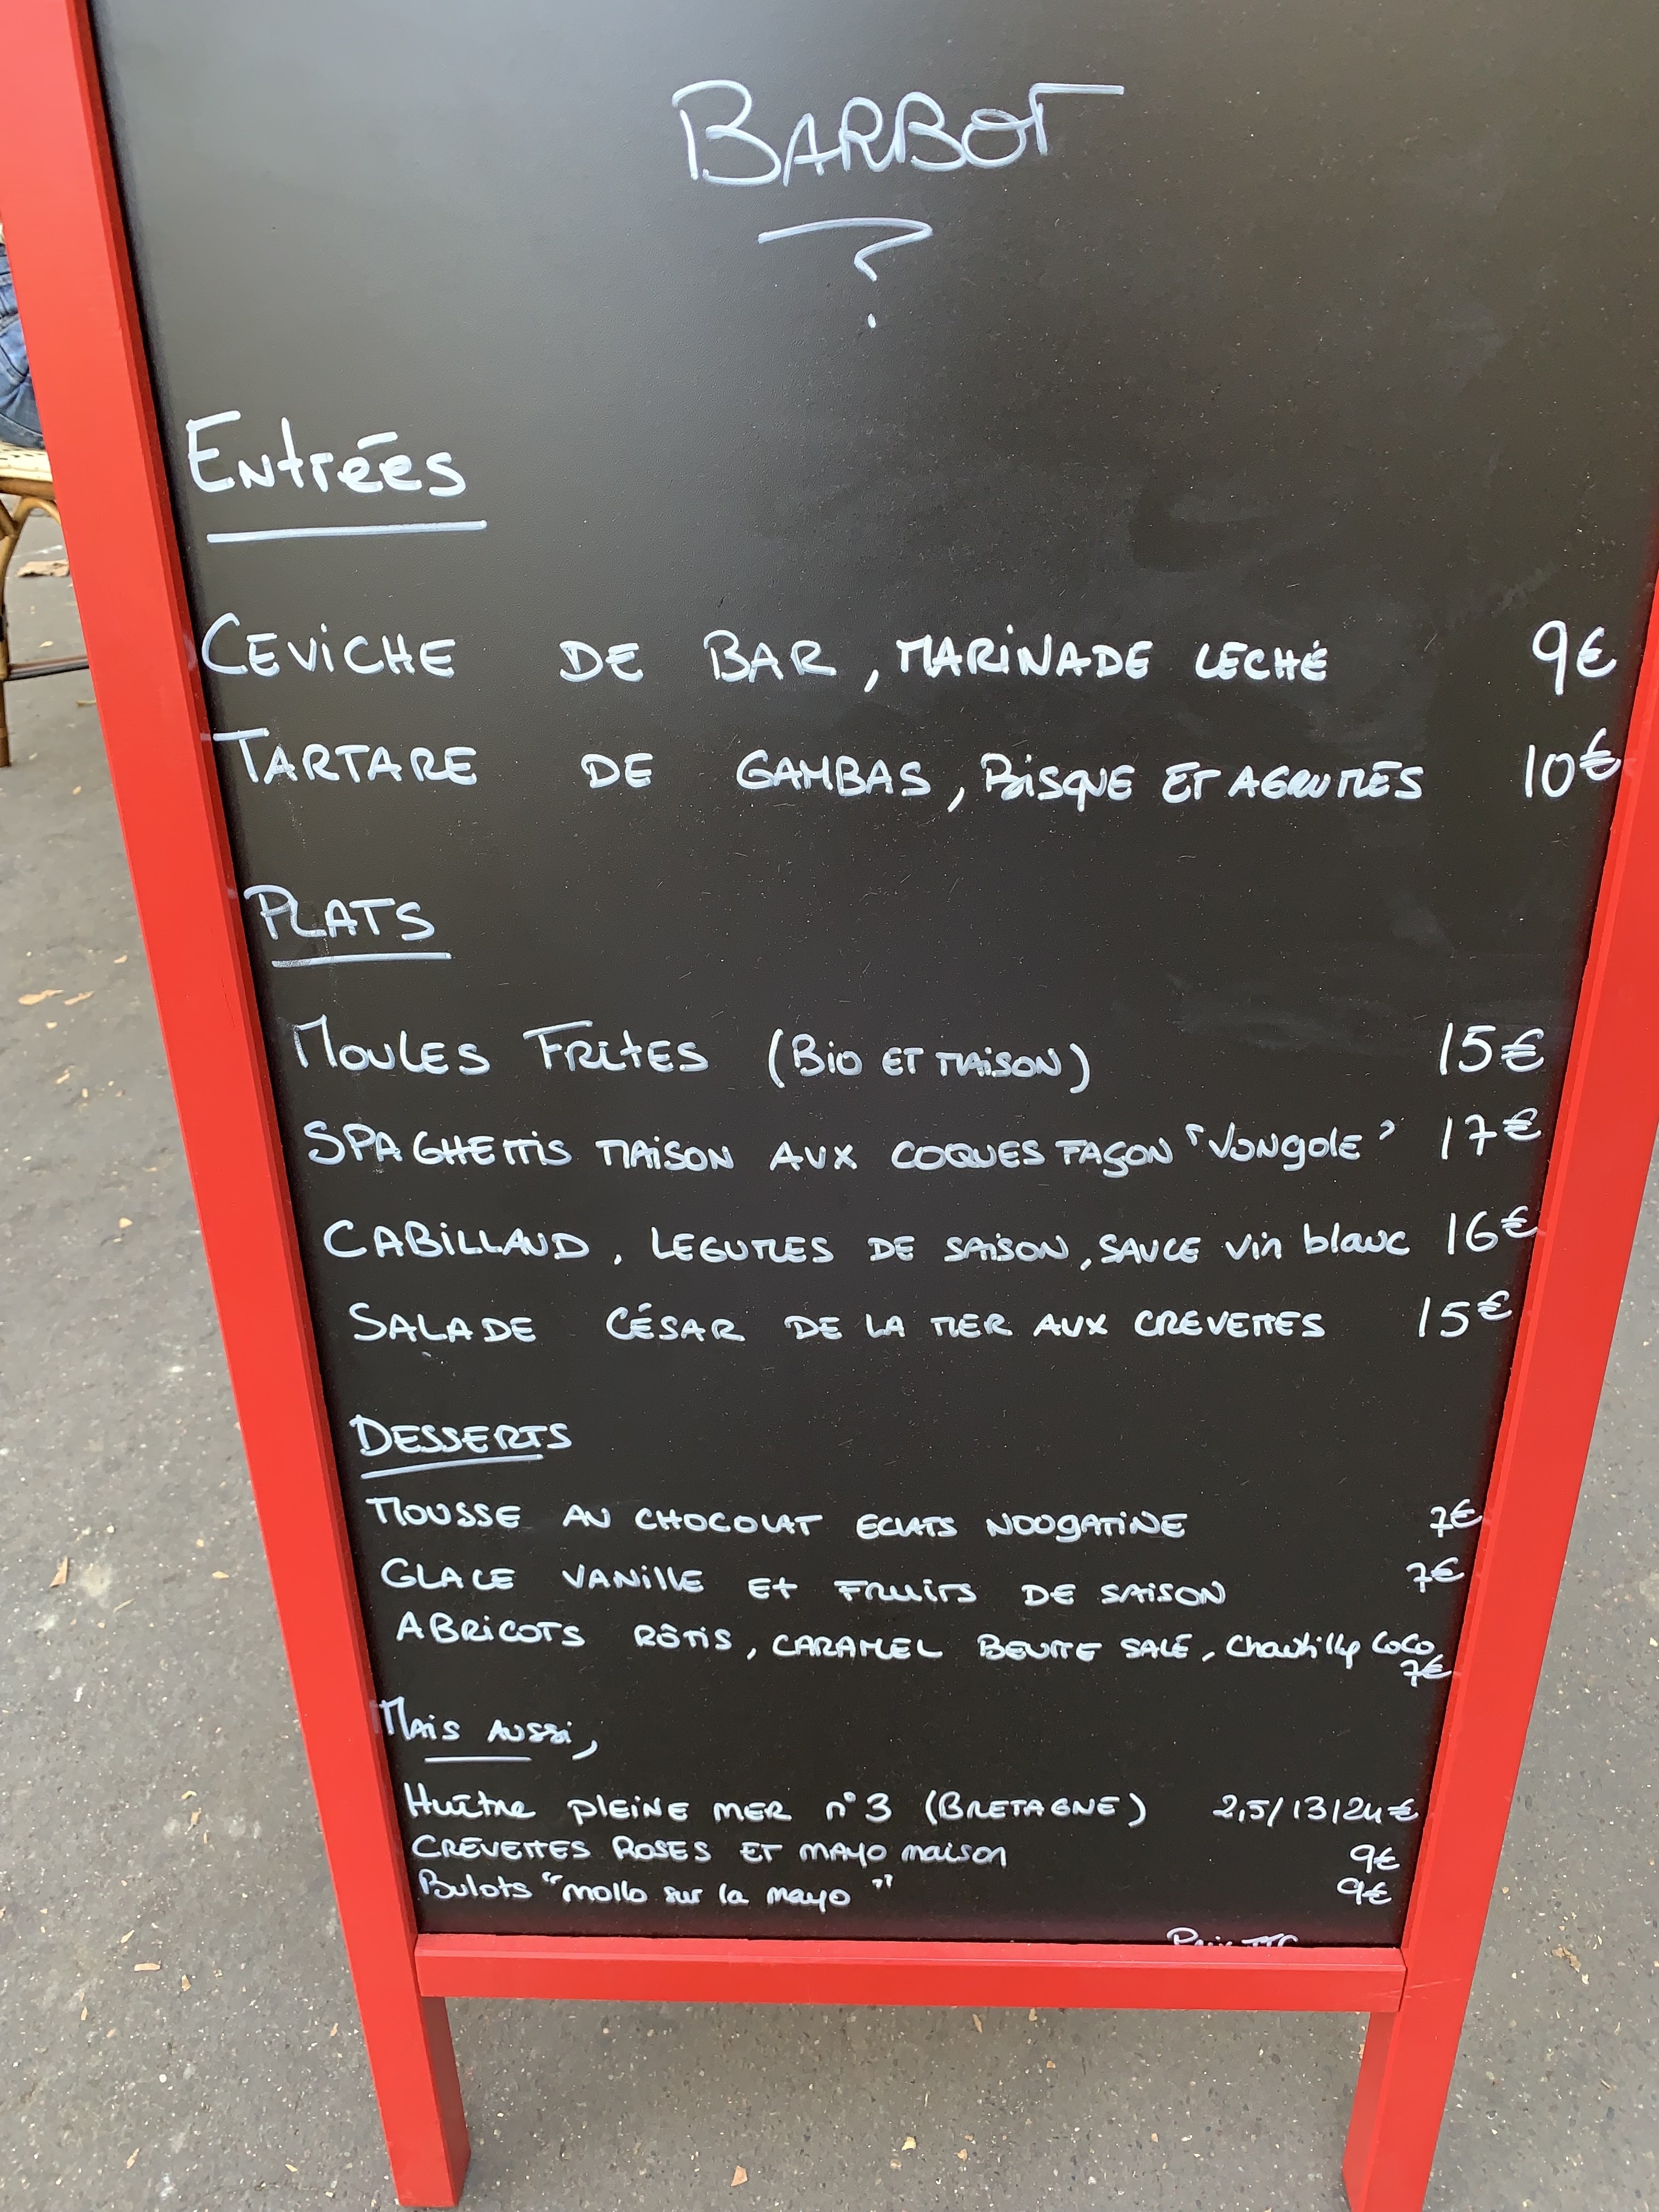 BARBOT
?
Entrées
CEVICHE DE BAR, MARINADE LECHÉ 9€
TARTARE DE GAMBAS, BISQUE ET AGRUMES 10€
PLATS
MOULES FRITES (BIO ET MAISON) 15€
SPAGHETTIS MAISON AUX COQUES FAÇON "VONGOLE" 17€
CABILLAUD, LEGUMES DE SAISON, SAUCE vin blanc 16€
SALADE CÉSAR DE LA MER AUX CREVETTES 15€
DESSERTS
MOUSSE AU CHOCOLAT ECLATS NOUGATINE 7€
GLACE VANILLE ET FRUITS DE SAISON 7€
ABRICOTS RÔTIS, CARAMEL BEURRE SALÉ, Chantilly Coco
7€
MAIS AUSSI,
Huître PLEINE MER n°3 (BRETAGNE) 2,5/13/24€
CREVETTES ROSES ET MAYO maison 9€
Bulots "mollo sur la mayo" 9€
Prix TTC